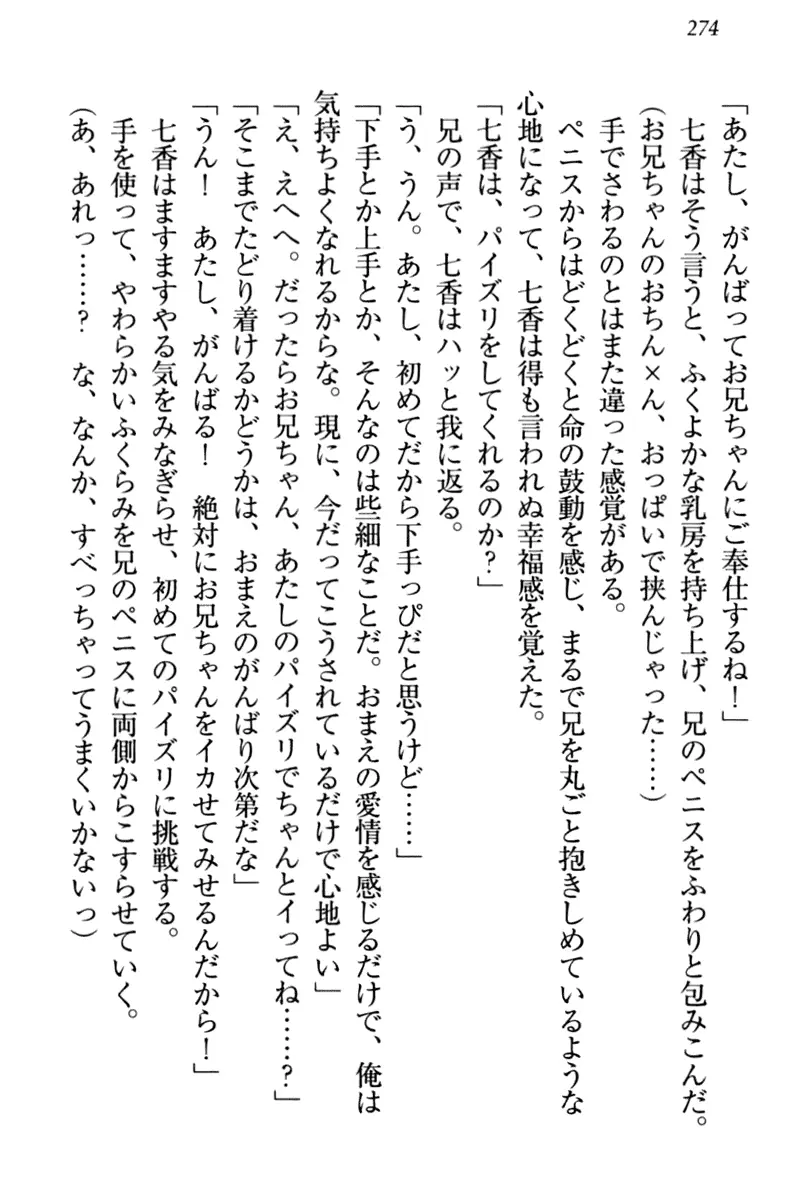 274
「あたし、がんばってお兄ちゃんにご奉仕するね！」
七香はそう言うと、ふくよかな乳房を持ち上げ、兄のペニスをふわりと包みこんだ。
（お兄ちゃんのおちん×ん、おっぱいで挟んじゃった……）
手でさわるのとはまた違った感覚がある。
ペニスからはどくどくと命の鼓動を感じ、まるで兄を丸ごと抱きしめているような
心地になって、七香は得も言われぬ幸福感を覚えた。
「七香は、パイズリをしてくれるのか？」
兄の声で、七香はハッと我に返る。
「う、うん。あたし、初めてだから下手っぴだと思うけど……」
「下手とか上手とか、そんなのは些細なことだ。おまえの愛情を感じるだけで、俺は
気持ちよくなれるからな。現に、今だってこうされているだけで心地よい」
「え、えへへ。だったらお兄ちゃん、あたしのパイズリでちゃんとイってね……？」
「そこまでたどり着けるかどうかは、おまえのがんばり次第だな」
「うん！　あたし、がんばる！　絶対にお兄ちゃんをイカせてみせるんだから！」
七香はますますやる気をみなぎらせ、初めてのパイズリに挑戦する。
手を使って、やわらかいふくらみを兄のペニスに両側からこすらせていく。
（あ、あれっ……？　な、なんか、すべっちゃってうまくいかないっ）